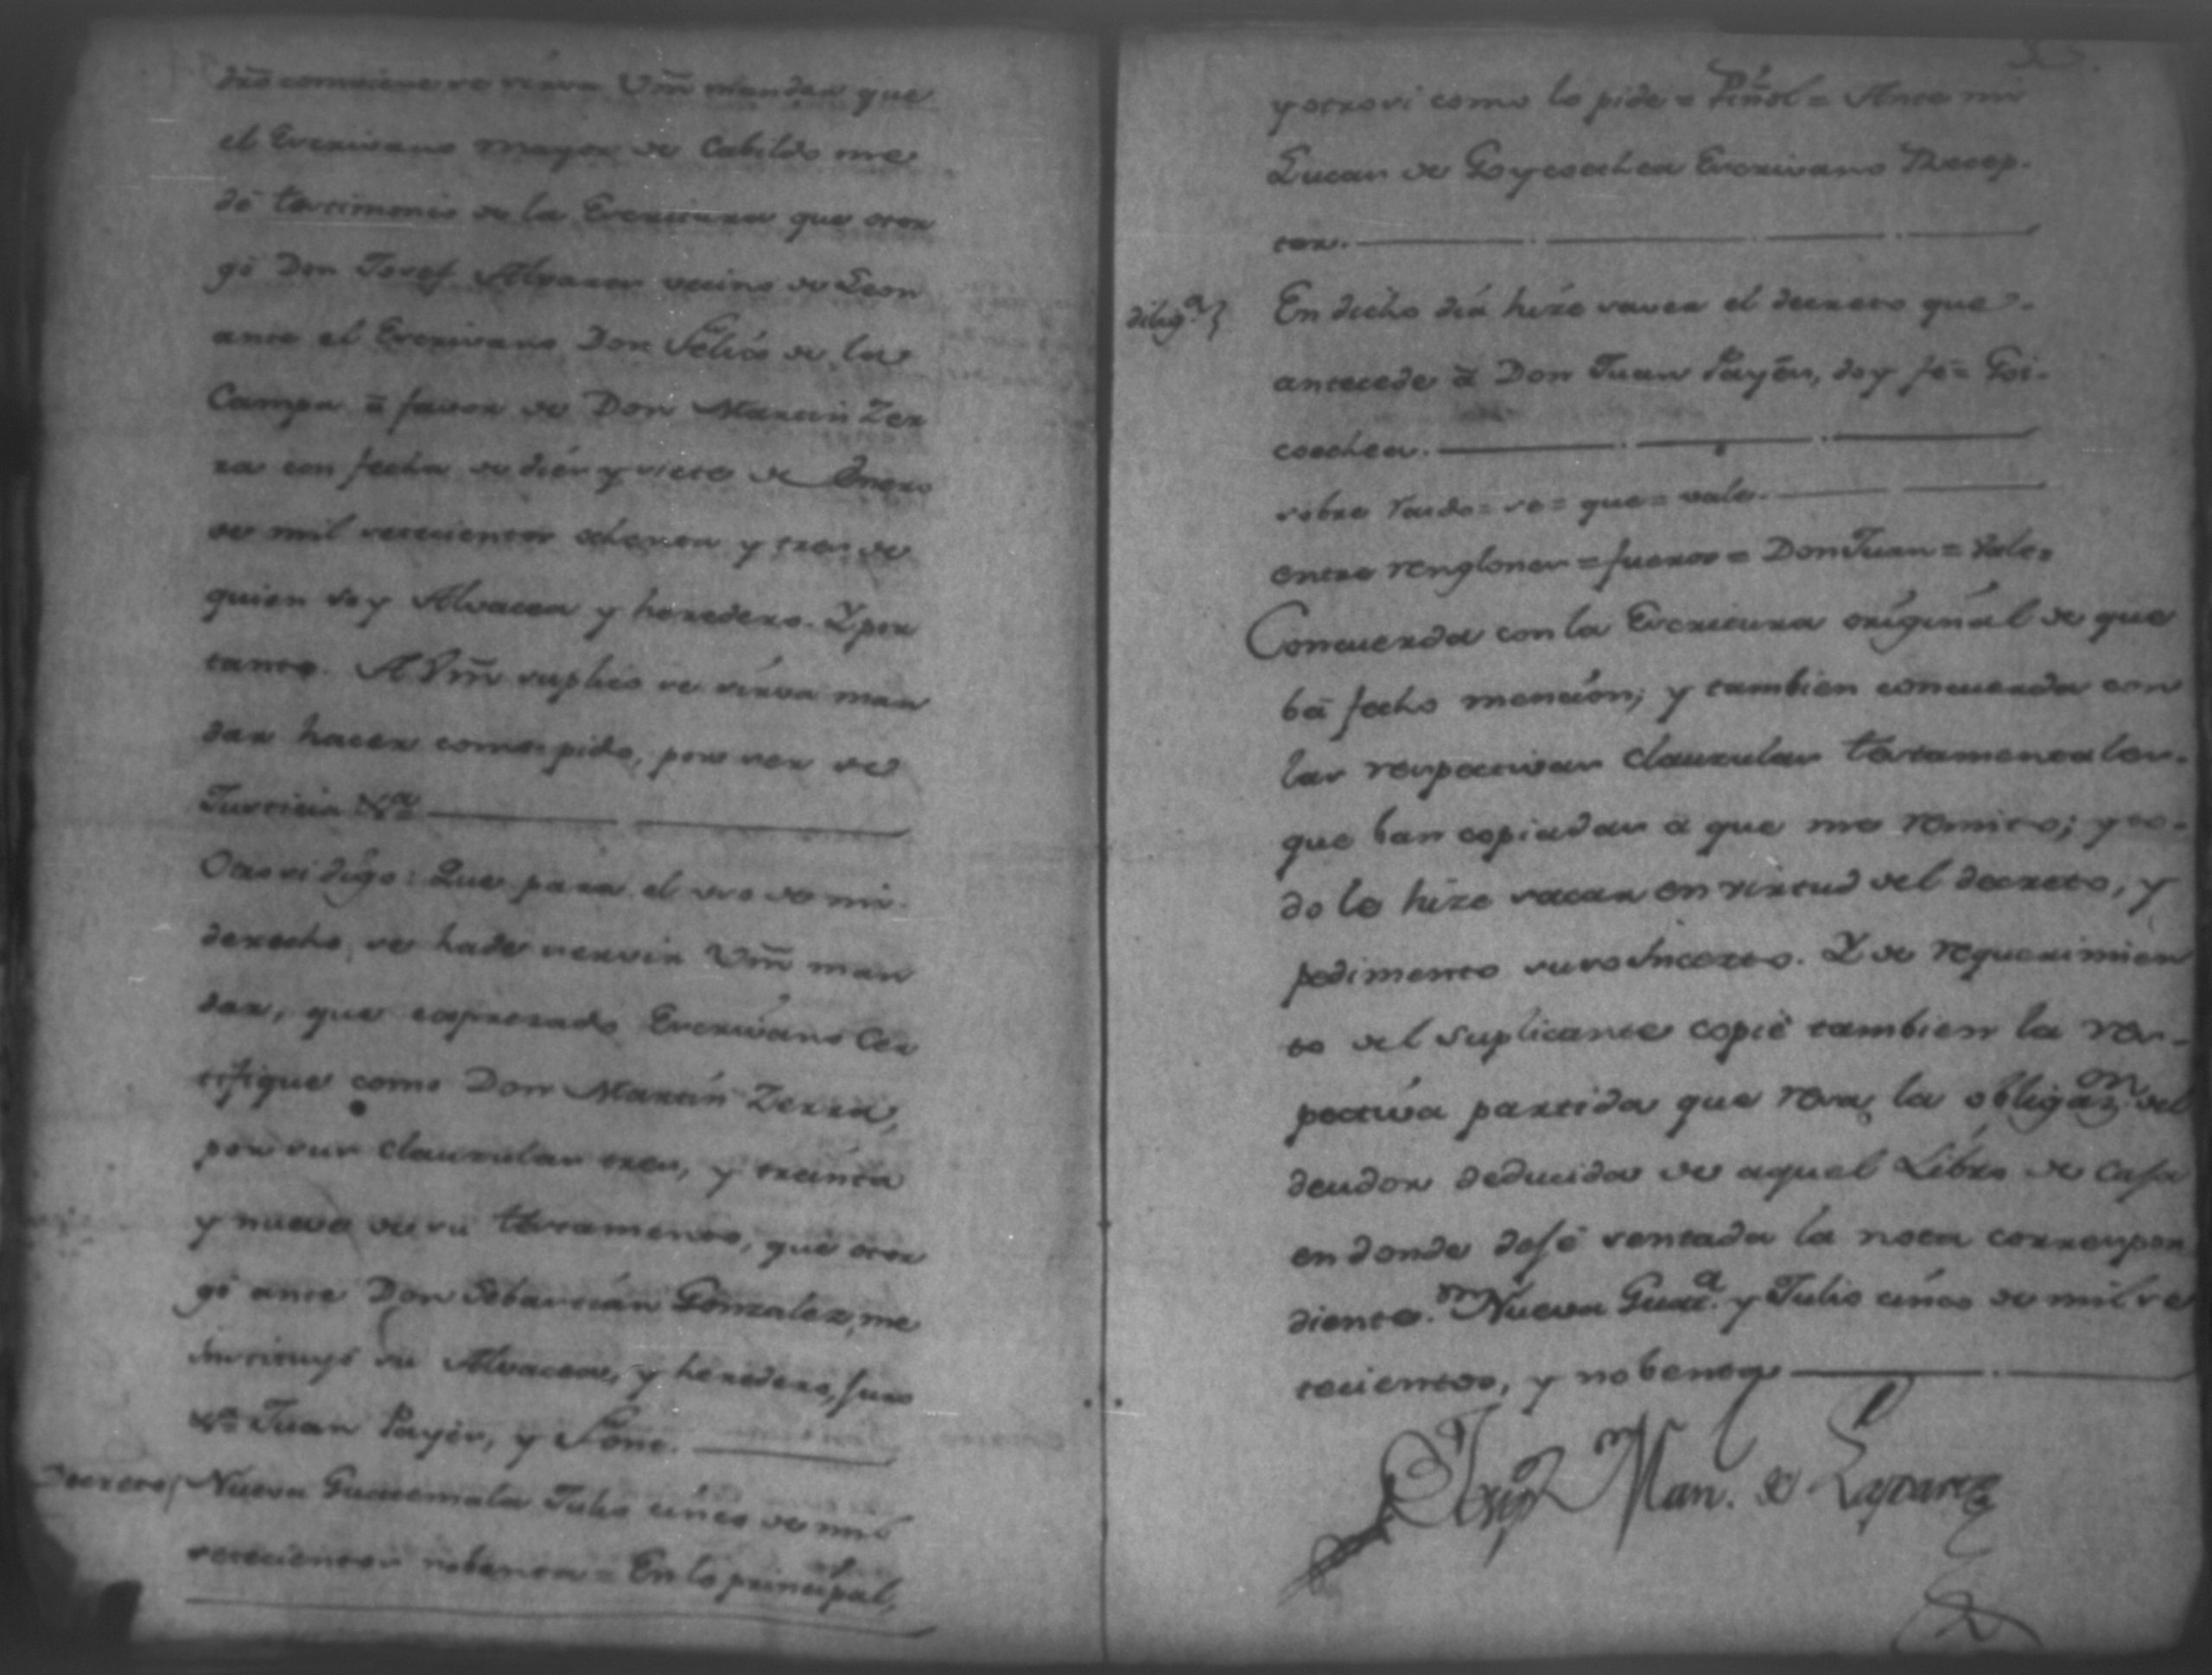 dro conviene se sirva Vm̃ mandar que
el Escrivano mayor de Cabildo me
dé testimonio de la Escritura que otor
gó Don Josef Alvarez vecino de Leon
ante el Escrivano Don Felis de la
Campa â favor de Don Martin Zer
ra con fecha de dies y siete de Enero
de mil setecientos ochenta y tres de
quien soy Alvacea y heredero. Y por
tanto. A Vm̃ suplico se sirva man
dar hacer como pido, por ser de
Justicia
Otro si digo: Que para el uso de mi
derecho, se hade servir Vm̃ man
dar, que expresado Escrivano Cer
tifique como Don Martin Zerra,
por sus clausulas tres, y treinta
y nueve de su testamento, que otor
gó ante Don Sebastián Gonzalez, me
instituyó su Alvacea, y heredero, juro
Juan Payés, y Font.
Decreto Nueva Guatemala Julio cinco de mil
setecientos nobenta = En lo principal,
33.
y otrosi como lo pide = Piñol = Ante mi
Lucas de Goycoechea Escrivano Recep-
tor.
dilig.a En dicho dia hize saver el decreto que
antecede â Don Juan Payés, doy fé = Goi-
coechea.
sobre raido = se = que = vale.
entre renglones = fueros = Don Juan = Vale=
Concuerda con la Escritura original de que
bâ fecho mencion; y tambien concuerda con
las respectivas clausulas testamentales
que ban copiadas â que me remito; y to-
do lo hize sacar en virtud del decreto, y
pedimento suso Incerto. Y de requerimien
to del suplicante copié tambien la res-
pectiva partida que reza la obligaz.on del
deudor deducida de aquel Libro de Casa
en donde dejé sentada la nota correspon
diente. Nueva Guat.a y Julio cinco de mil se
tecientos, y nobenta
Josep Man. de Laparte